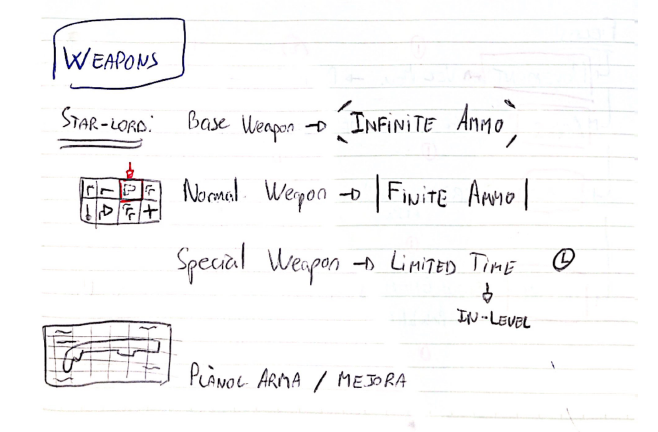 WEAPONS
STAR-LORD: Base Weapon → INFINITE AMMO
Normal Weapon → | FINITE AMMO |
Special Weapon → LIMITED TIME
IN-LEVEL
PLÀNOL ARMA / MEJORA